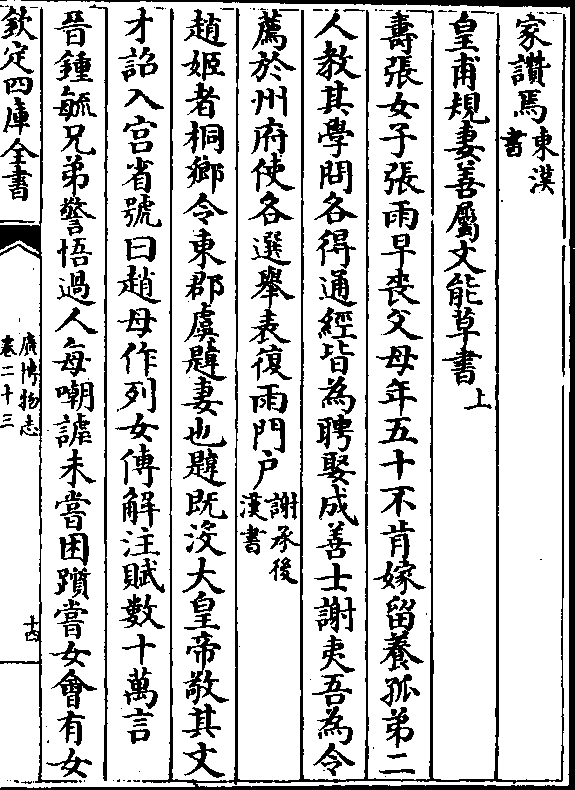 家讚焉東漢書
皇甫規妻善屬文能草書上
壽張女子張雨早喪父母年五十不肯嫁留養孤弟二
人教其學問各得通經皆為聘娶成善士謝夷吾為令
薦於州府使各選舉表復雨門戶謝承後漢書
趙姬者桐鄉令東郡虞韙妻也韙既沒大皇帝敬其文
才詔入宫省號曰趙母作列女傳解注賦數十萬言
晉鍾毓兄弟警悟過人每嘲謔未嘗困躓嘗女會有女
欽定四庫全書
廣博物志
卷二十三
十四